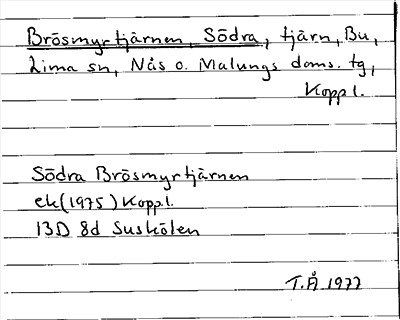 Brösmyrtjärnen, Södra, tjärn, Bu,
Lima sn, Nås o. Malungs doms. tg,
Koppl.
Södra Brösmyrtjärnen
ek(1975) Koppl.
13D 8d Suskölen
T.Å 1977